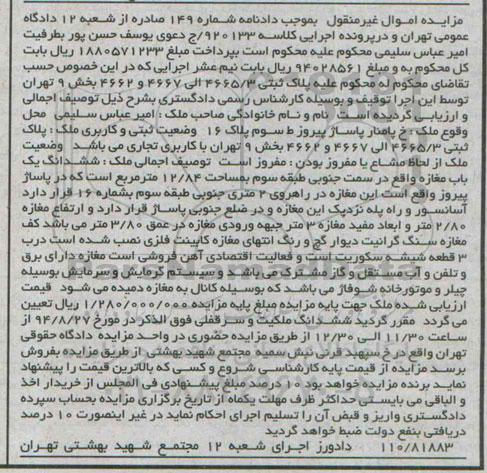 مزایده اموال غیرمنقول بموجب دادنامه شماره ۱۴۹ صادره از شعبه ۱۲ دادگاه
عمومی تهران و درپرونده اجرایی کلاسه ۹۲۰۱۳۳/ج دعوی یوسف حسن پور بطرفیت
امیر عباس سلیمی محکوم علیه محکوم است بپرداخت مبلغ ۱۸۸۰۵۷۱۲۳۳ ریال بابت
کل محکوم به و مبلغ ۹۴۰۲۸۵۶۱ ریال بابت نیم عشر اجرایی که در این خصوص حسب
تقاضای محکوم له محکوم علیه پلاک ثبتی ۴۶۶۵/۳ الی ۴۶۶۷ و ۴۶۶۲ بخش ۹ تهران
توسط این اجرا توقیف و بوسیله کارشناس رسمی دادگستری بشرح ذیل توصیف اجمالی
و ارزیابی گردیده است نام و نام خانوادگی صاحب ملک : امیر عباس سلیمی محل
وقوع ملک : خ پامنار پاساژ پیروز ط سوم پلاک ۱۶ وضعیت ثبتی و کاربری ملک : پلاک
ثبتی ۴۶۶۵/۳ الی ۴۶۶۷ و ۴۶۶۲ بخش ۹ تهران با کاربری تجاری می باشد وضعیت
ملک از لحاظ مشاع یا مفروز بودن : مفروز است توصیف اجمالی ملک : ششدانگ یک
باب مغازه واقع در سمت جنوبی طبقه سوم بمساحت ۱۲/۸۴ مترمربع است که در پاساژ
پیروز واقع است این مغازه در راهروی ۲ متری جنوبی طبقه سوم بشماره ۱۶ قرار دارد
آسانسور و راه پله نزدیک این مغازه و در ضلع جنوبی پاساژ قرار دارد و ارتفاع مغازه
۲/۸۰ متر و ابعاد مفید مغازه ۳ متر جبهه ورودی مغازه در عمق ۳/۸۰ متر می باشد کف
مغازه سنگ گرانیت دیوار گچ و رنگ انتهای مغازه کابینت فلزی نصب شده است درب
۳ قطعه شیشه سکوریت است و فعالیت اقتصادی آهن فروشی است مغازه دارای برق
و تلفن و آب مستقل و گاز مشترک می باشد و سیستم گرمایش و سرمایش بوسیله
چیلر و موتورخانه شوفاژ می باشد که بوسیله کانال به مغازه دمیده می شود قیمت
ارزیابی شده ملک جهت پایه مزایده مبلغ پایه مزایده ۱/۲۸۰/۰۰۰/۰۰۰ ریال تعیین
می گردد مقرر گردید ششدانگ ملکیت و سرقفلی فوق الذکر در مورخ ۹۴/۸/۲۷ از
ساعت ۱۱/۳۰ الی ۱۲/۳۰ از طریق مزایده حضوری در واحد مزایده دادگاه حقوقی
تهران واقع در خ سپهبد قرنی نبش سمیه مجتمع شهید بهشتی از طریق مزایده بفروش
برسد مزایده از قیمت پایه کارشناسی شروع و کسی که بالاترین قیمت را پیشنهاد
نماید برنده مزایده خواهد بود ۱۰ درصد مبلغ پیشنهادی فی المجلس از خریدار اخذ
و الباقی می بایستی حداکثر ظرف مهلت یکماه از تاریخ برگزاری مزایده بحساب سپرده
دادگستری واریز و قبض آن را تسلیم اجرای احکام نماید در غیر اینصورت ۱۰ درصد
دریافتی بنفع دولت ضبط خواهد گردید
۱۱۰/۸۱۸۸۳ دادورز اجرای شعبه ۱۲ مجتمع شهید بهشتی تهران